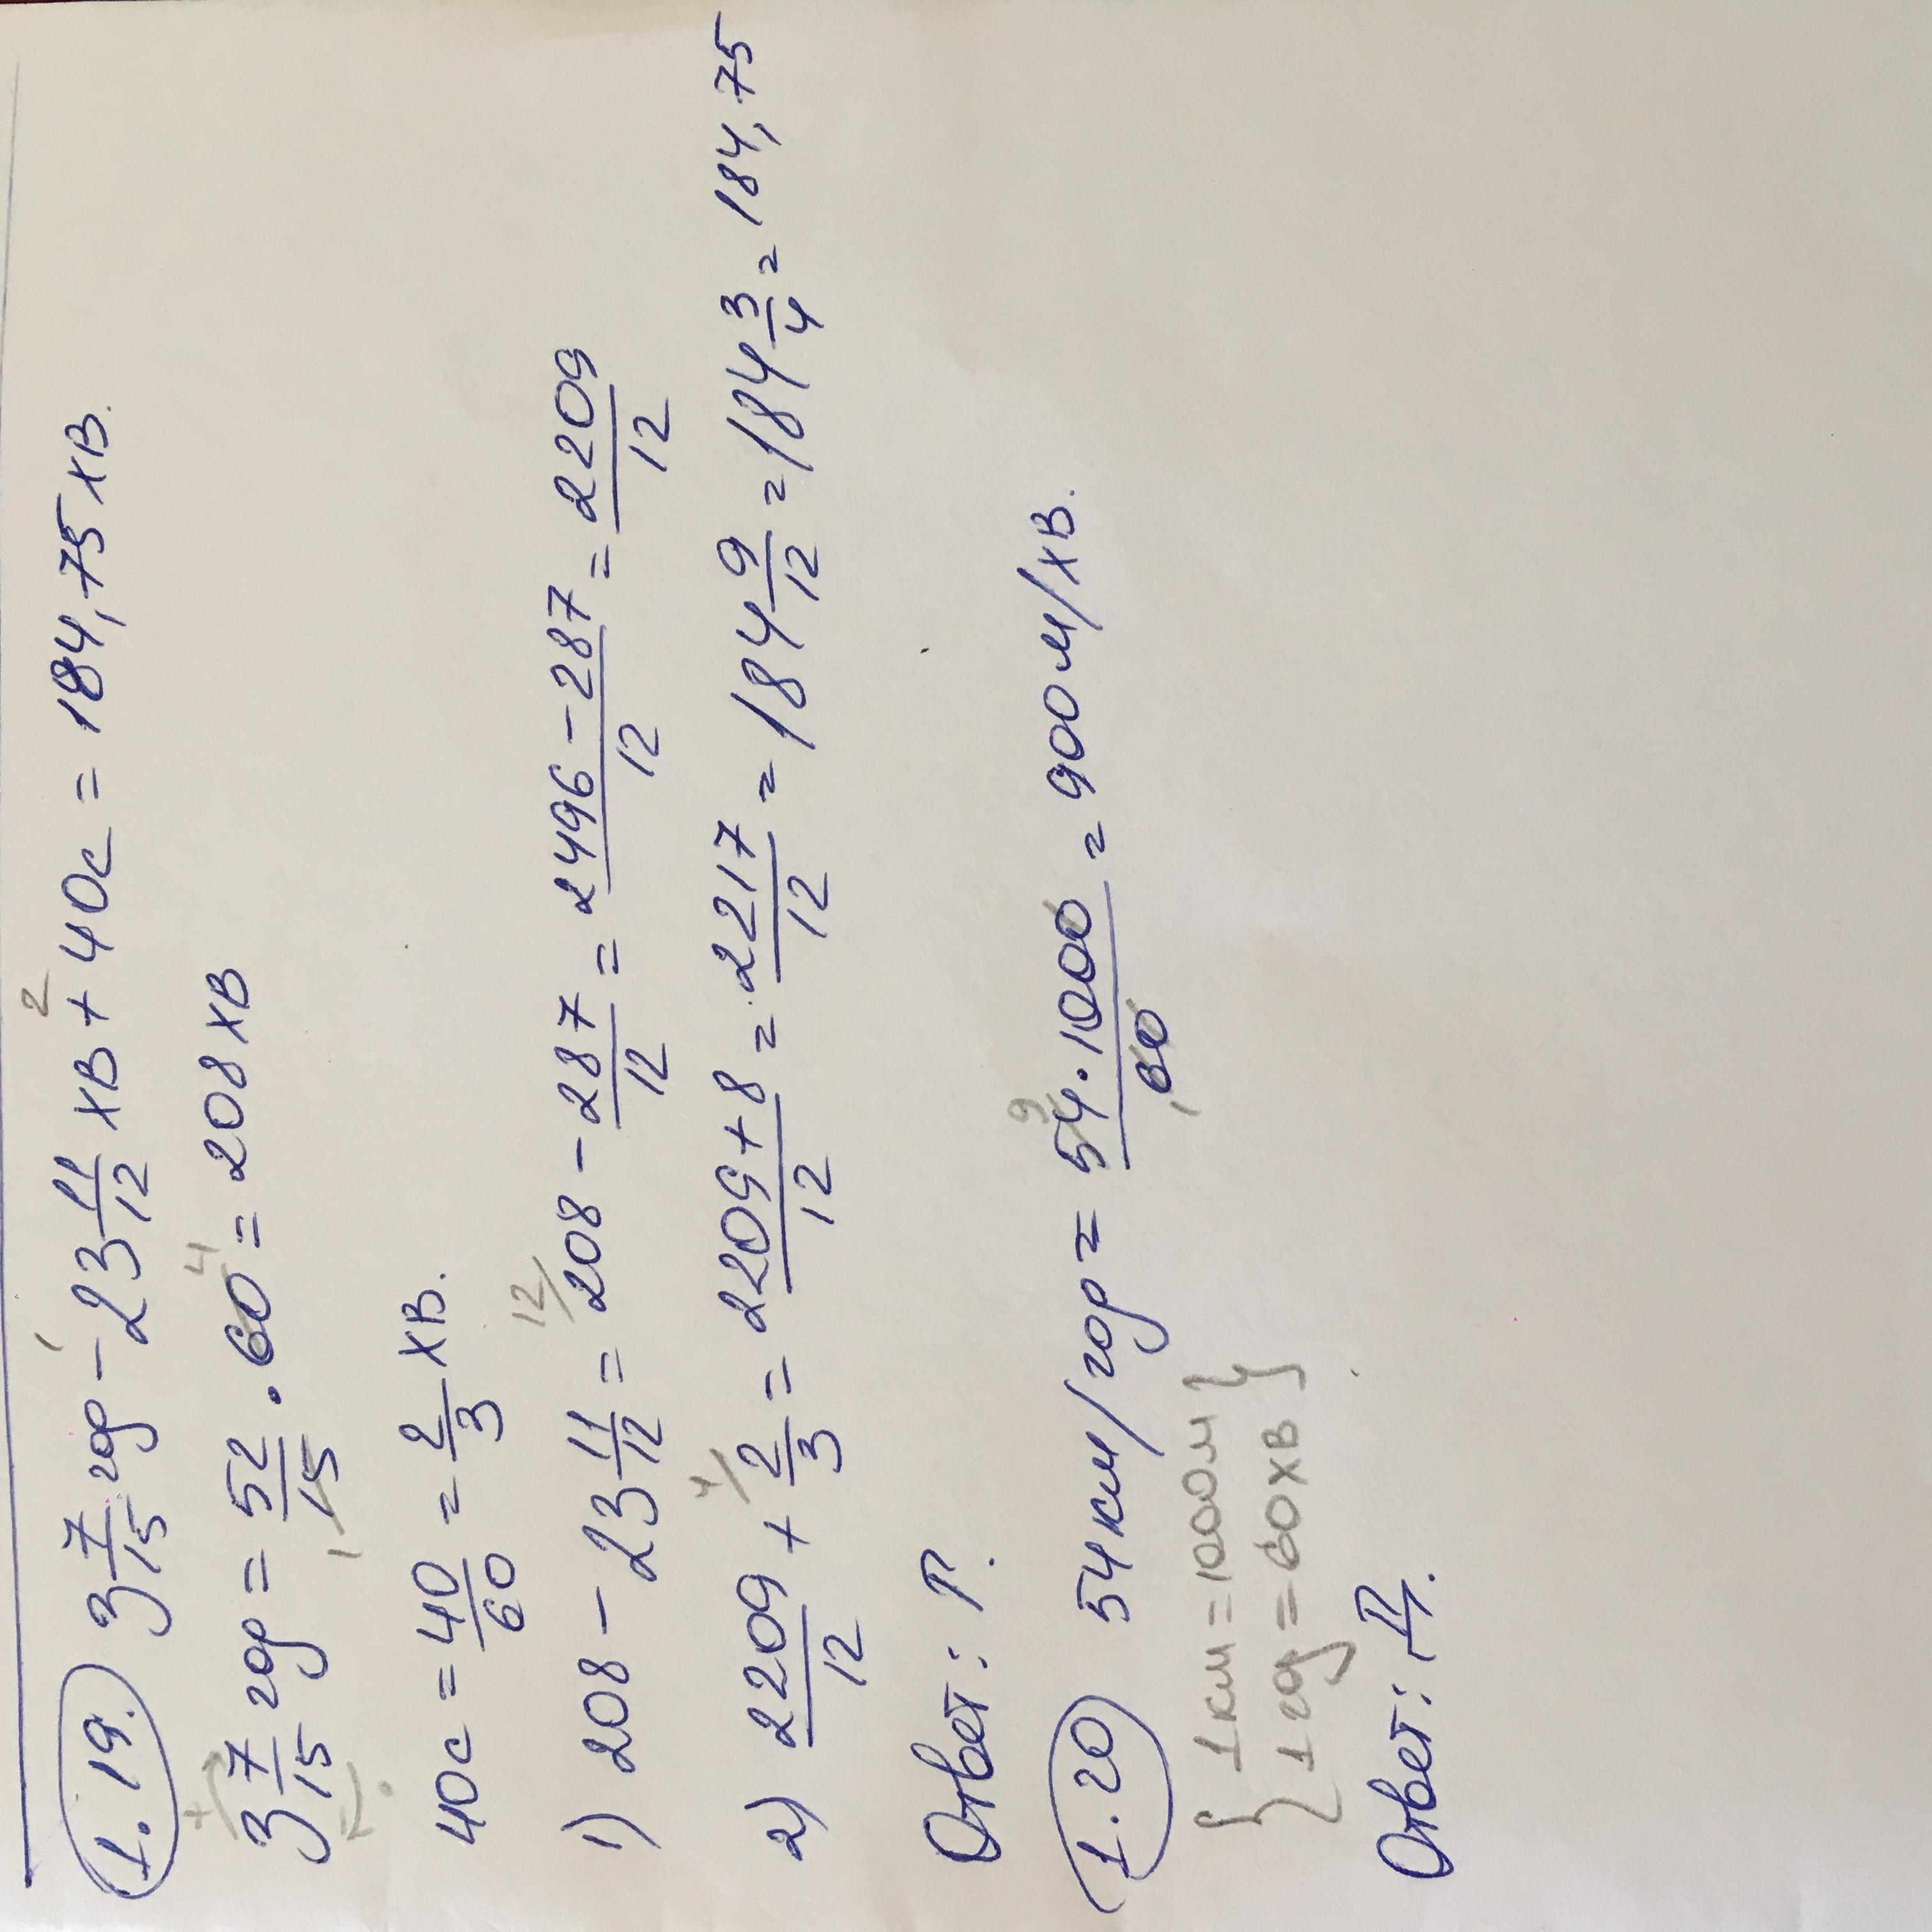 1.19. 3 7/15 год - 23 11/12 хв + 40с = 184,75 хв.
3 7/15 год = 52/15 · 60 = 208 хв
40с = 40/60 = 2/3 хв.
1) 208 - 23 11/12 = 208 - 287/12 = (2496 - 287)/12 = 2209/12
2) 2209/12 + 2/3 = (2209 + 8)/12 = 2217/12 = 184 9/12 = 184 3/4 = 184,75
Ответ: Г.
1.20 54 км/год = (54 · 1000)/60 = 900 м/хв.
{ 1 км = 1000м }
{ 1 год = 60 хв }
Ответ: Д.